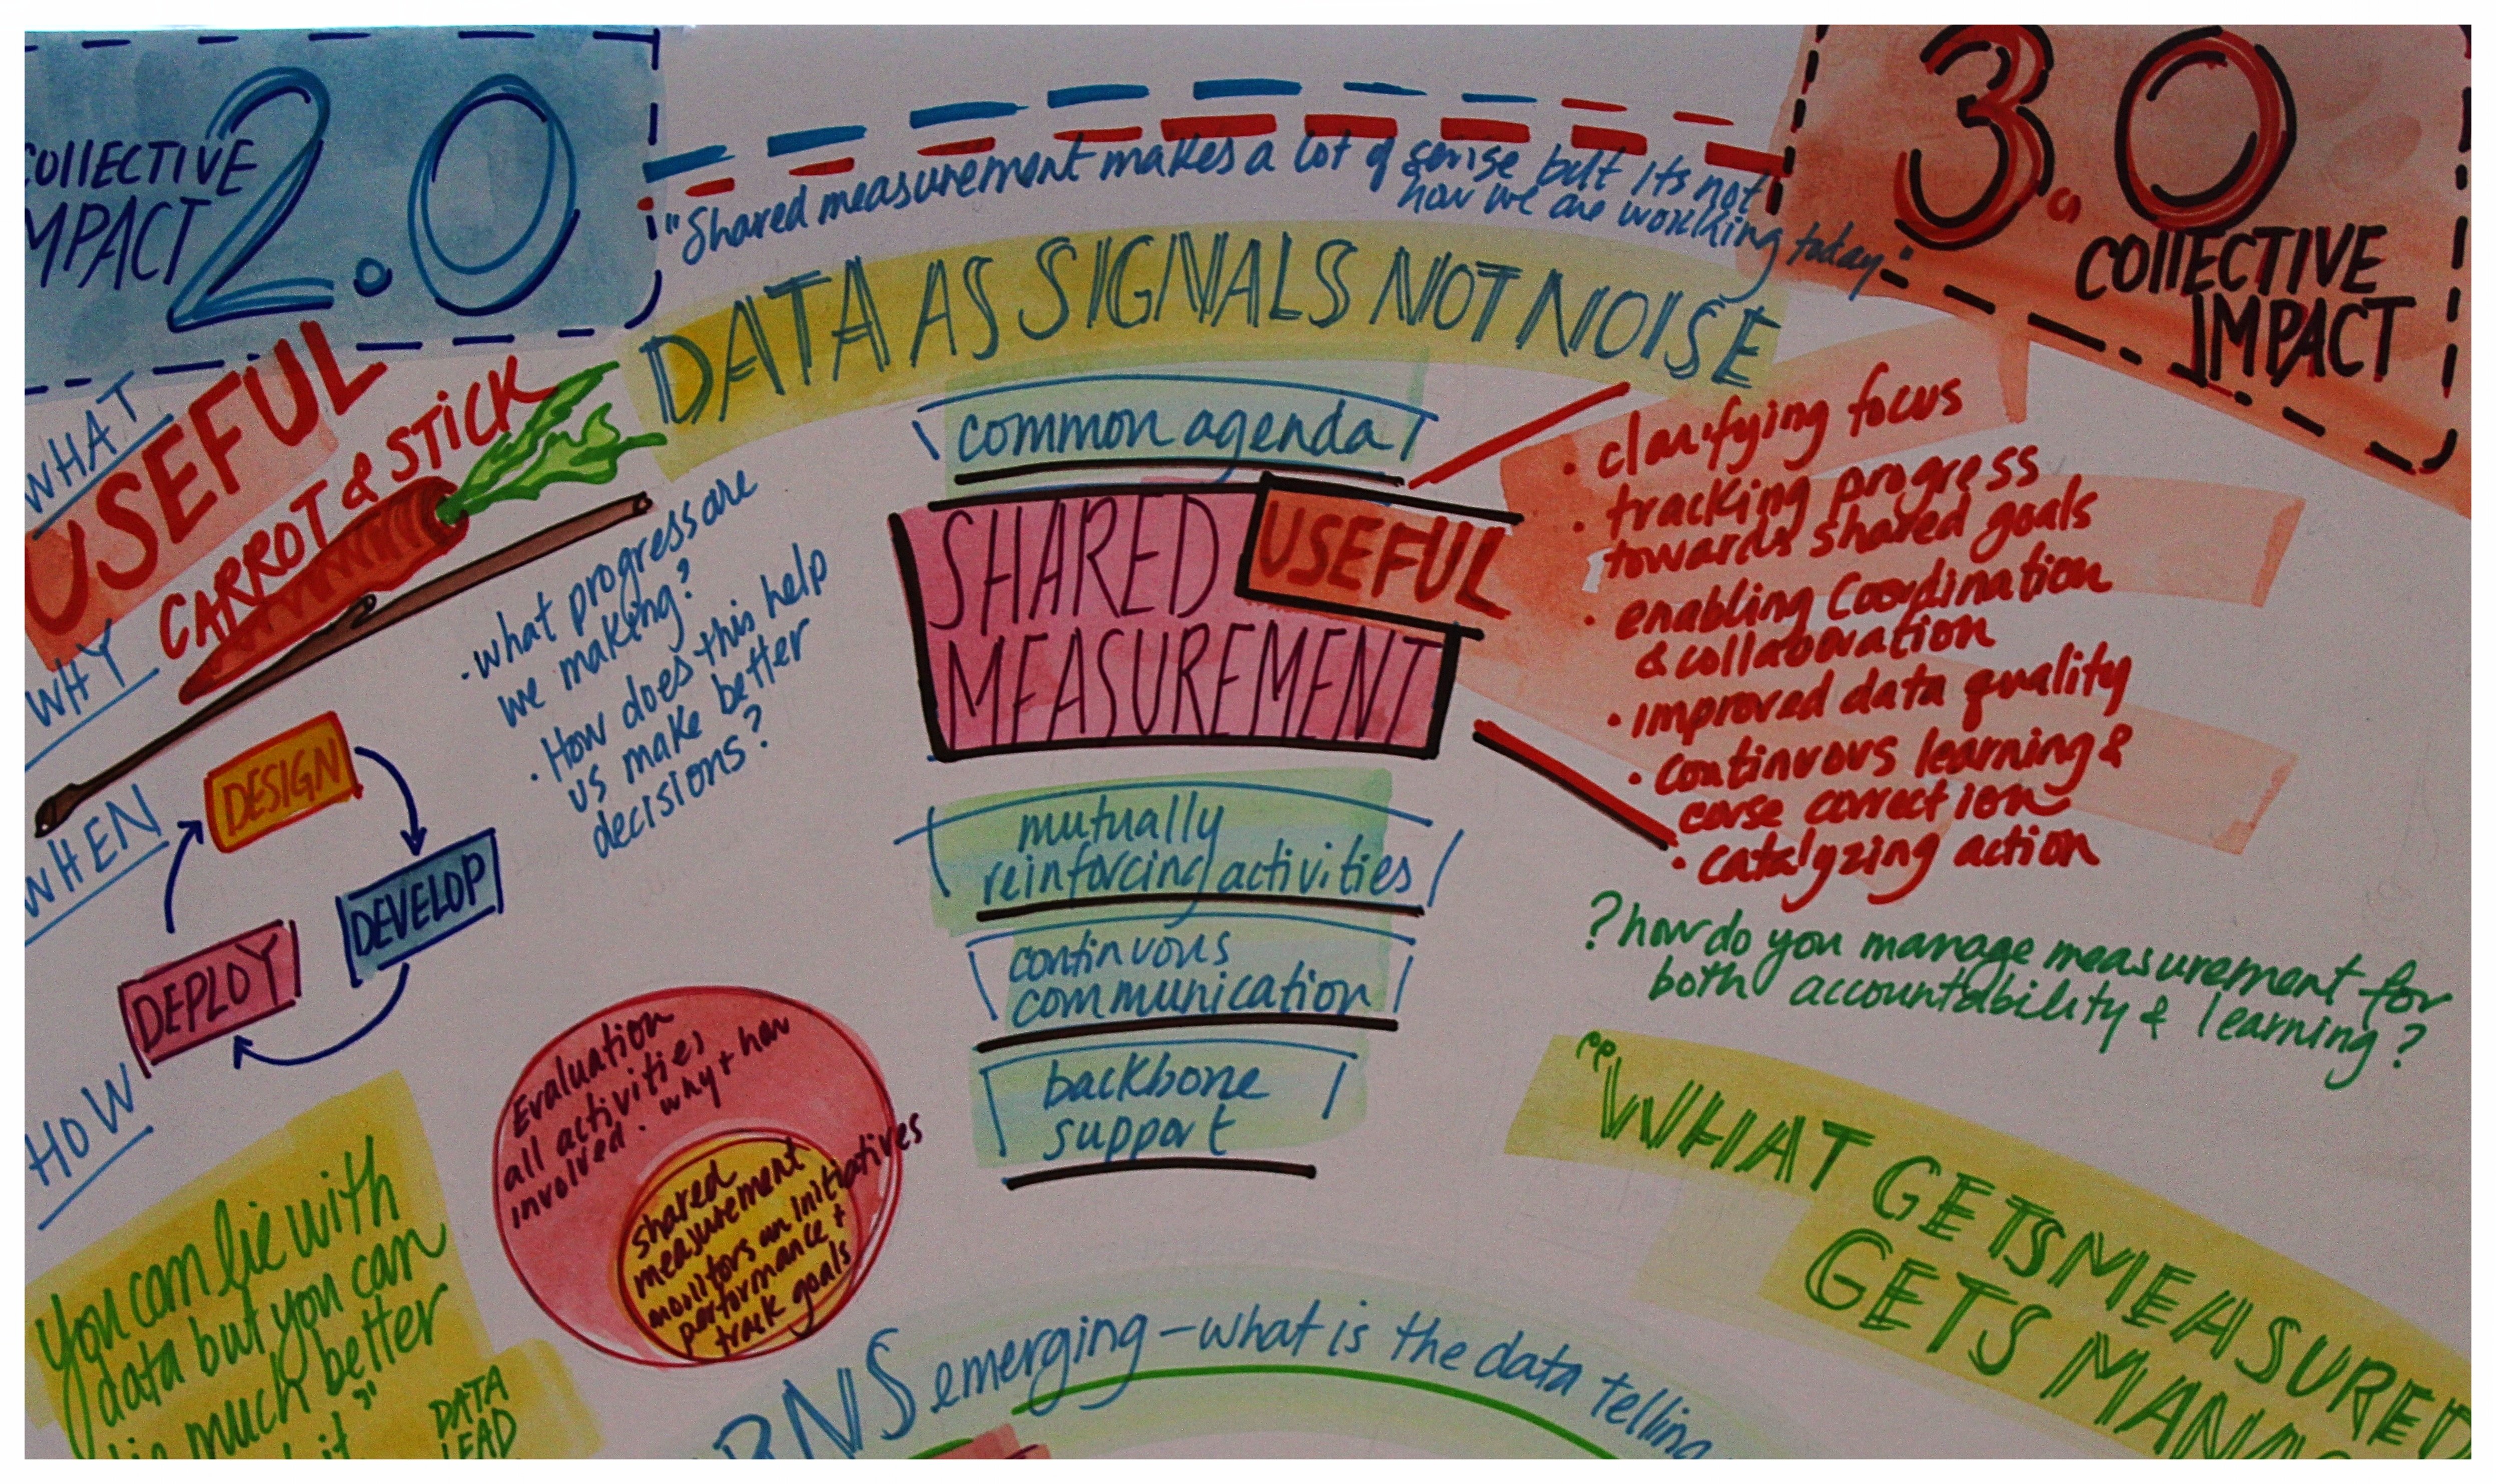 COLLECTIVE
IMPACT
2.0
"Shared measurement makes a lot of sense but its not
how we are working today"
3.0
COLLECTIVE
IMPACT
DATA AS SIGNALS NOT NOISE
WHAT
USEFUL
CARROT & STICK
WHY
• what progress are
we making?
• How does this help
us make better
decisions?
WHEN
DESIGN
DEVELOP
DEPLOY
HOW
common agenda
SHARED
USEFUL
MEASUREMENT
mutually
reinforcing activities
continuous
communication
backbone
support
• clarifying focus
• tracking progress
towards shared goals
• enabling coordination
& collaboration
• improved data quality
• continuous learning &
corse correction
• catalyzing action
? how do you manage measurement for
both accountability & learning?
"WHAT GETS MEASURED
GETS MANAG
Evaluation
all activities
involved · why + how
shared
measurement
monitors an initiatives
performance +
track goals
you can lie with
data but you can
lie much better
it"
DATA
LEAD
RNS emerging - what is the data telling